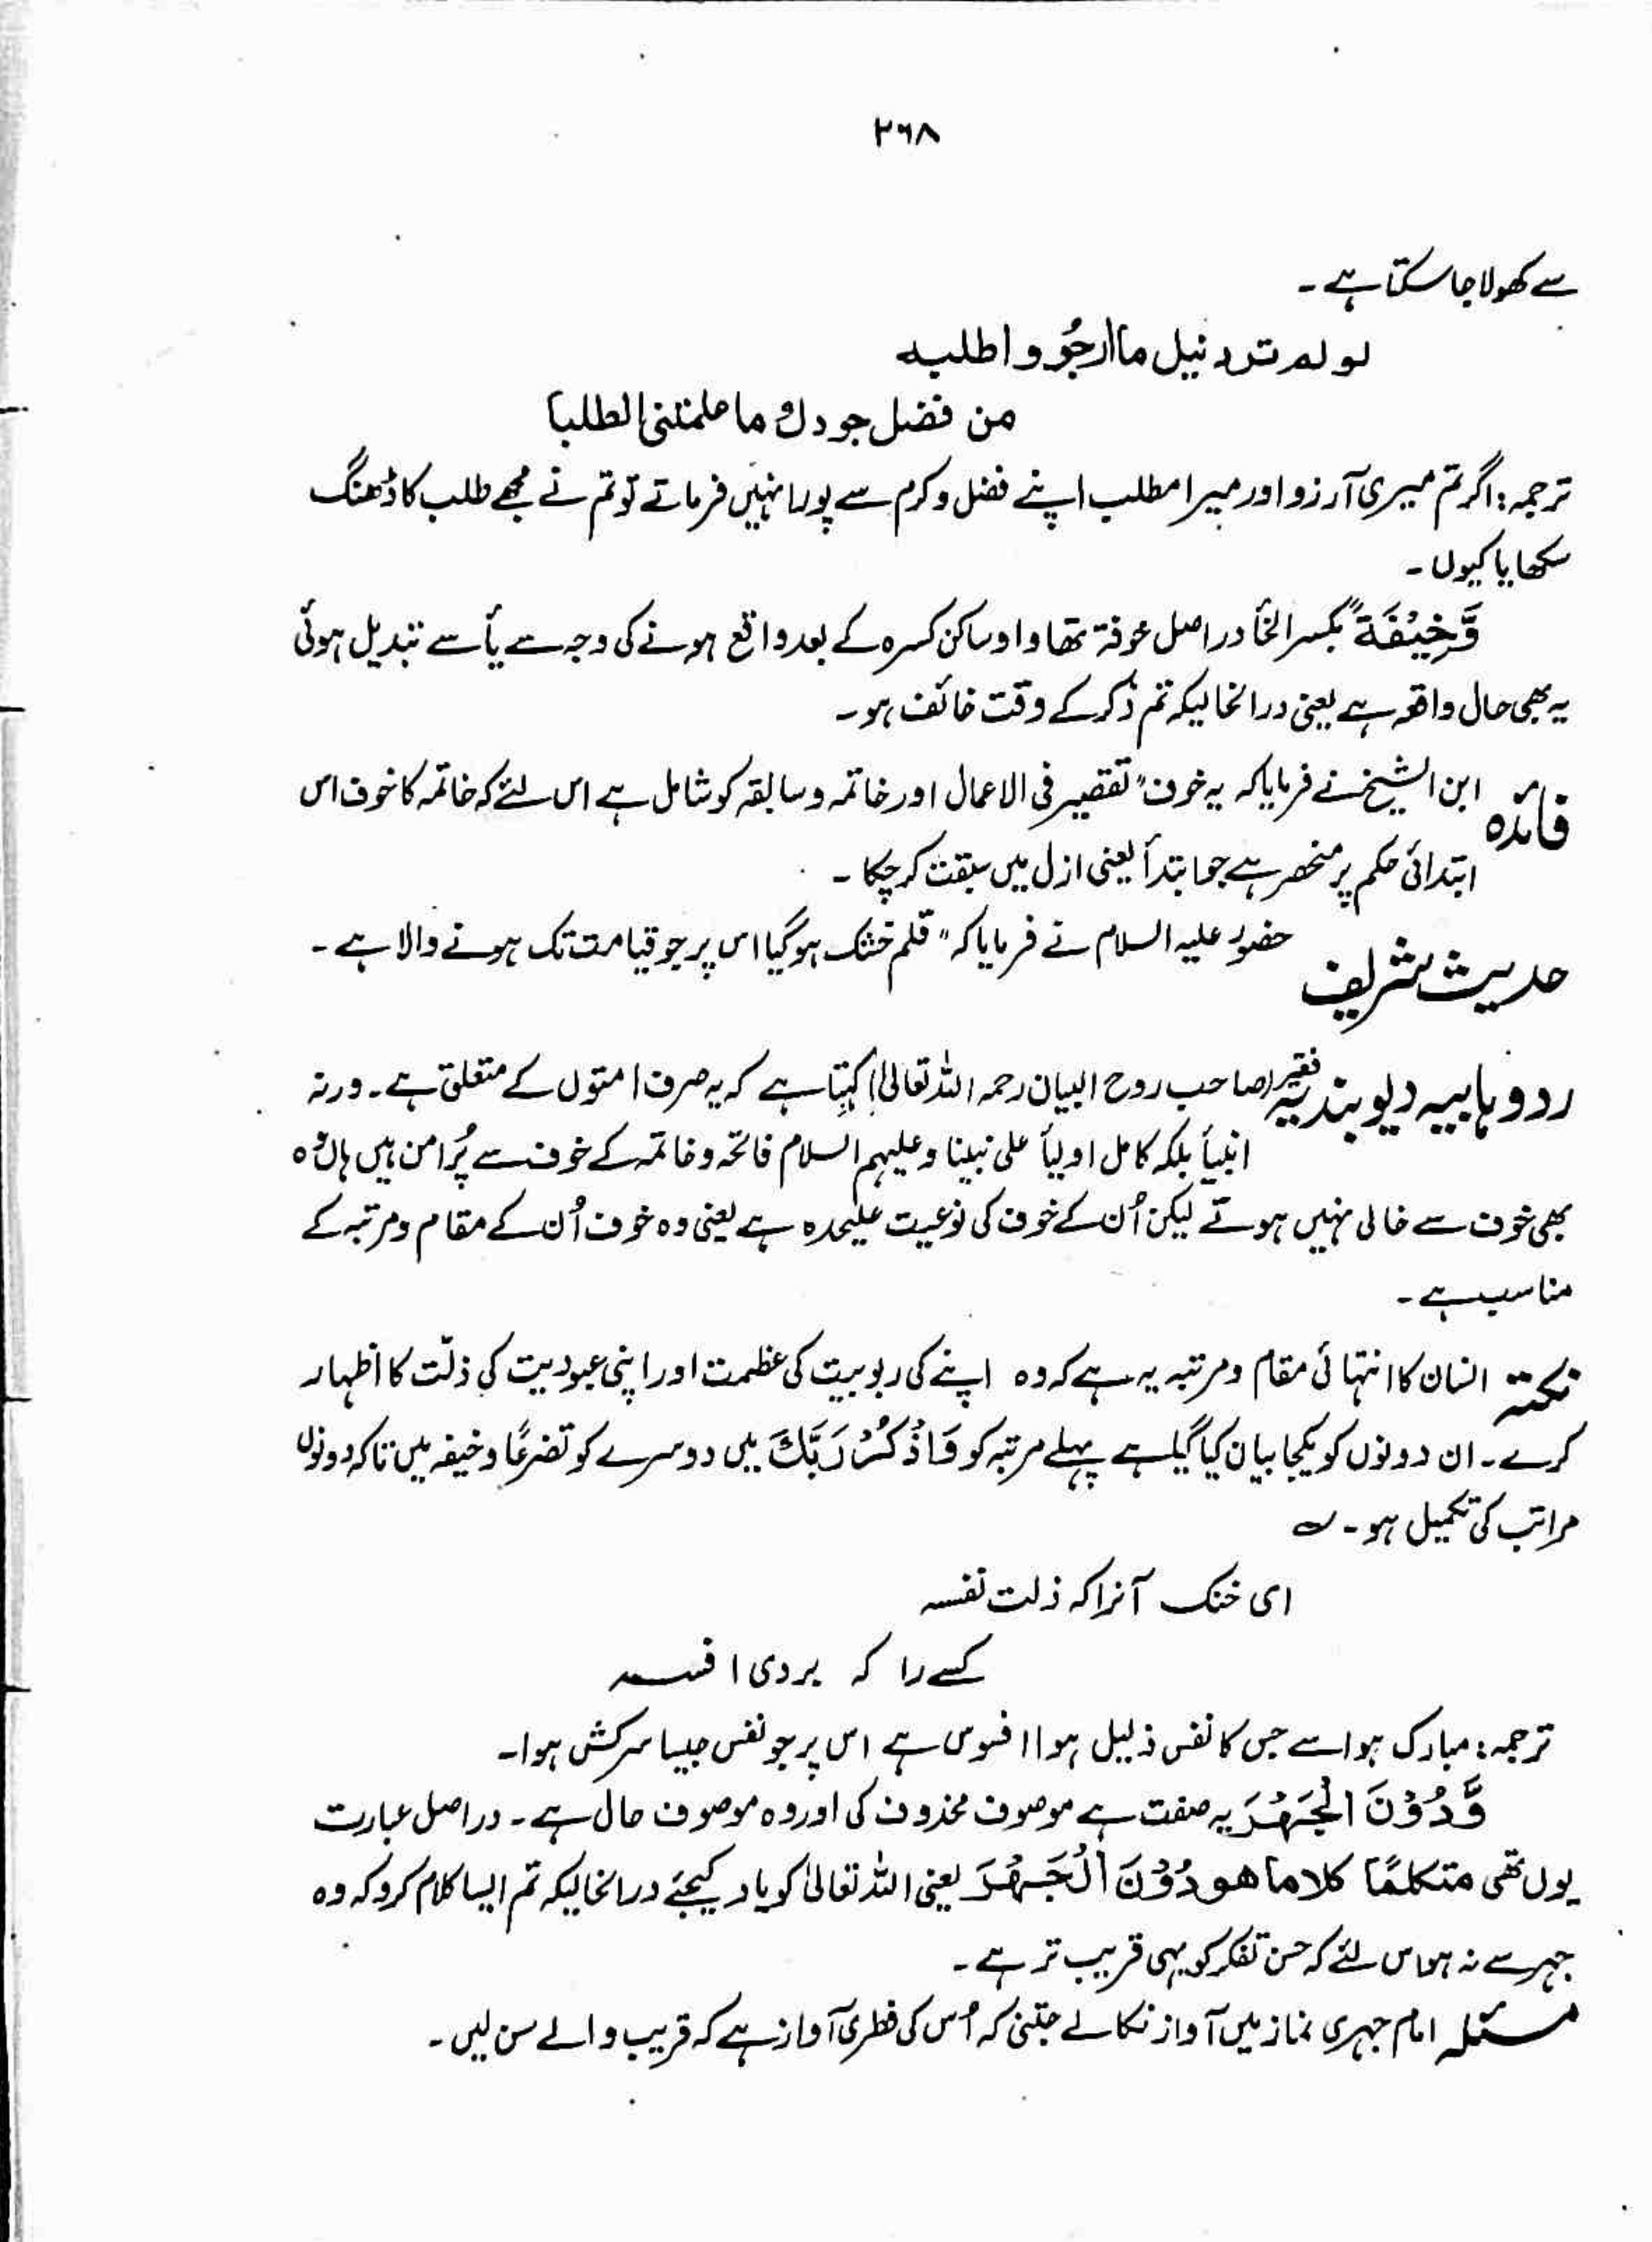 ۲۶۸
سے کھولا جا سکتا ہے ۔
لو لم ترد نیل ما ارجُو و اطلبہ
من فضل جودك ما علمتنی الطلبا
ترجمہ: اگر تم میری آرزو اور میرا مطلب اپنے فضل و کرم سے پورا نہیں فرماتے تو تم نے مجھے طلب کا ڈھنگ
سکھایا کیوں ۔
وَّخِیْفَةً بکسر الخأ در اصل خوفۃ تھا واو ساکن کسرہ کے بعد واقع ہونے کی وجہ سے یأ سے تبدیل ہوئی
یہ بھی حال واقعہ ہے یعنی درانحالیکہ تم ذکر کے وقت خائف ہو ۔
فائدہ ابن الشیخ نے فرمایا کہ یہ خوف" تقصیر فی الاعمال اور خاتمہ و سابقہ کو شامل ہے اس لئے کہ خاتمہ کا خوف اس
ابتدائی حکم پر منحصر ہے جو ابتدأ یعنی ازل میں سبقت کر چکا ۔
حدیث شریف حضور علیہ السلام نے فرمایا کہ "قلم خشک ہو گیا اس پر جو قیامت تک ہونے والا ہے ۔
رد وہابیہ دیوبندیہ فقیر (صاحب روح البیان رحمہ اللہ تعالیٰ) کہتا ہے کہ یہ صرف امتوں کے متعلق ہے۔ ورنہ
انبیأ بلکہ کامل اولیأ علی نبینا وعلیہم السلام فاتحہ و خاتمہ کے خوف سے پُر امن ہیں ہاں وہ
بھی خوف سے خالی نہیں ہوتے لیکن اُن کے خوف کی نوعیت علیحدہ ہے یعنی وہ خوف اُن کے مقام و مرتبہ کے
مناسب ہے ۔
نکتہ انسان کا انتہائی مقام و مرتبہ یہ ہے کہ وہ اپنے کی ربوبیت کی عظمت اور اپنی عبودیت کی ذلّت کا اظہار
کرے ۔ ان دونوں کو یکجا بیان کیا گیا ہے پہلے مرتبہ کو وَاذْكُرْ رَبَّكَ میں دوسرے کو تضرعًا و خیفہ میں تاکہ دونوں
مراتب کی تکمیل ہو ۔ ؎
ای خنک آنرا کہ ذلت نفسہ
کسے را کہ یردی افسہ
ترجمہ: مبارک ہو اسے جس کا نفس ذلیل ہوا افسوس ہے اس پر جو نفس جیسا سرکش ہوا۔
وَّدُوْنَ الْجَهْرِ یہ صفت ہے موصوف محذوف کی اور وہ موصوف حال ہے ۔ در اصل عبارت
یوں تھی متکلمًا کلاما ھو دُوْنَ الْجَهْرِ یعنی اللہ تعالیٰ کو یاد کیجئے درانحالیکہ تم ایسا کلام کرو کہ وہ
جہر سے نہ ہو اس لئے کہ حسن تفکر کو یہی قریب تر ہے ۔
مسئلہ امام جہری نماز میں آواز نکالے جتنی کہ اُس کی فطری آواز ہے کہ قریب والے سن لیں ۔